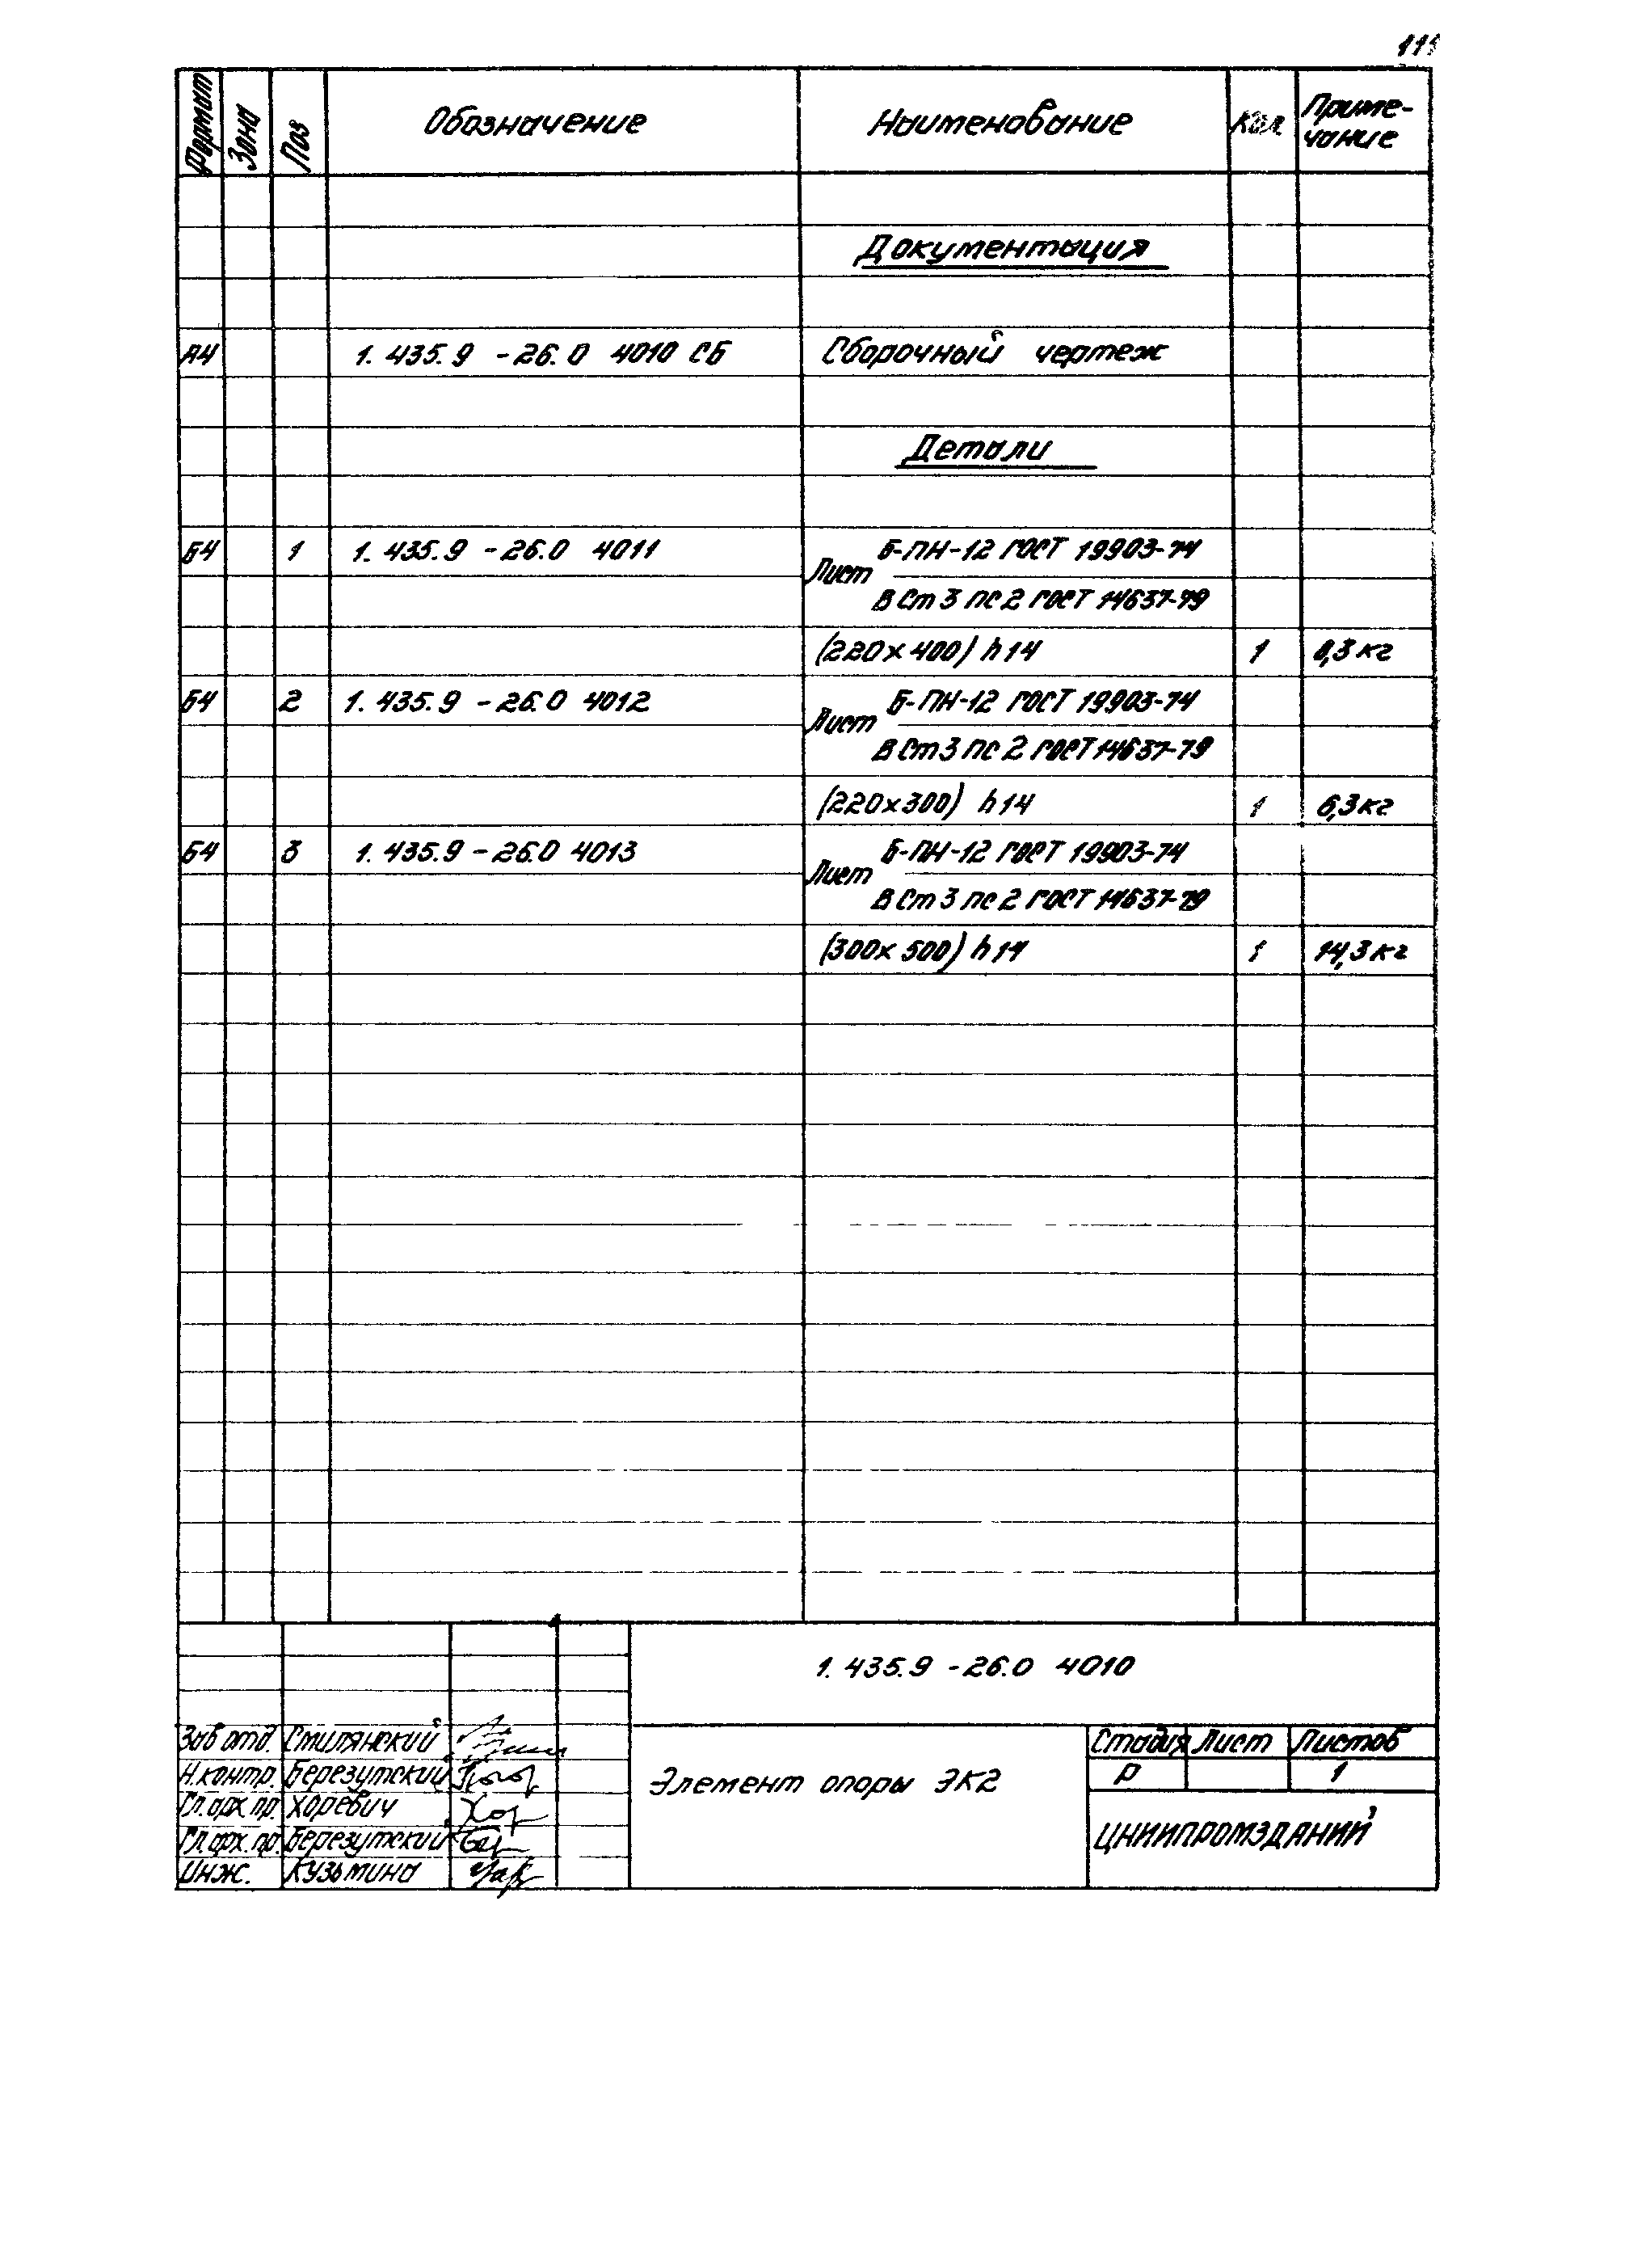 111
Формат Зона Поз Обозначение Наименование Кол Приме-
чание
Документация
А4 1.435.9 -26.0 4010 СБ Сборочный чертеж
Детали
Б4 1 1.435.9 -26.0 4011 Лист Б-ПН-12 ГОСТ 19903-74
В Ст 3 пс 2 ГОСТ 14637-79
(220х400) h14 1 8,3 кг
Б4 2 1.435.9 -26.0 4012 Лист Б-ПН-12 ГОСТ 19903-74
В Ст 3 пс 2 ГОСТ 14637-79
(220х300) h14 1 6,3 кг
Б4 3 1.435.9 -26.0 4013 Лист Б-ПН-12 ГОСТ 19903-74
В Ст 3 пс 2 ГОСТ 14637-79
(300х500) h14 1 14,3 кг
1.435.9 -26.0 4010
Зав отд. Смилянский
Н.контр. Березутский
Гл.арх.пр. Хоревич
Гл.арх.пр. Березутский
Инж. Кузьмина
Элемент опоры ЭК2
Стадия Лист Листов
Р 1
ЦНИИПРОМЗДАНИЙ